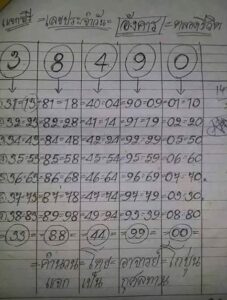 แจกฟรี=เลขประจำวัน=อังคาร=ตลอดชีวิต
3 8 4 9 0
31-13=81-18=40-04=90-09=01-10
32-23=82-28=41-14=91-19=02-20
34-43=84-48=42-24=92-29=05-50
35-53=85-58=45-54=95-59=06-60
36-63=86-68=46-64=96-69=07-70
37-73=87-78=47-74=97-79=03-30
38-83=89-98=49-94=93-39=08-80
=33=88=44=99=00=
คำนวน=โดย=อาจารย์=ไก่ปุ่น
แจก เป็น